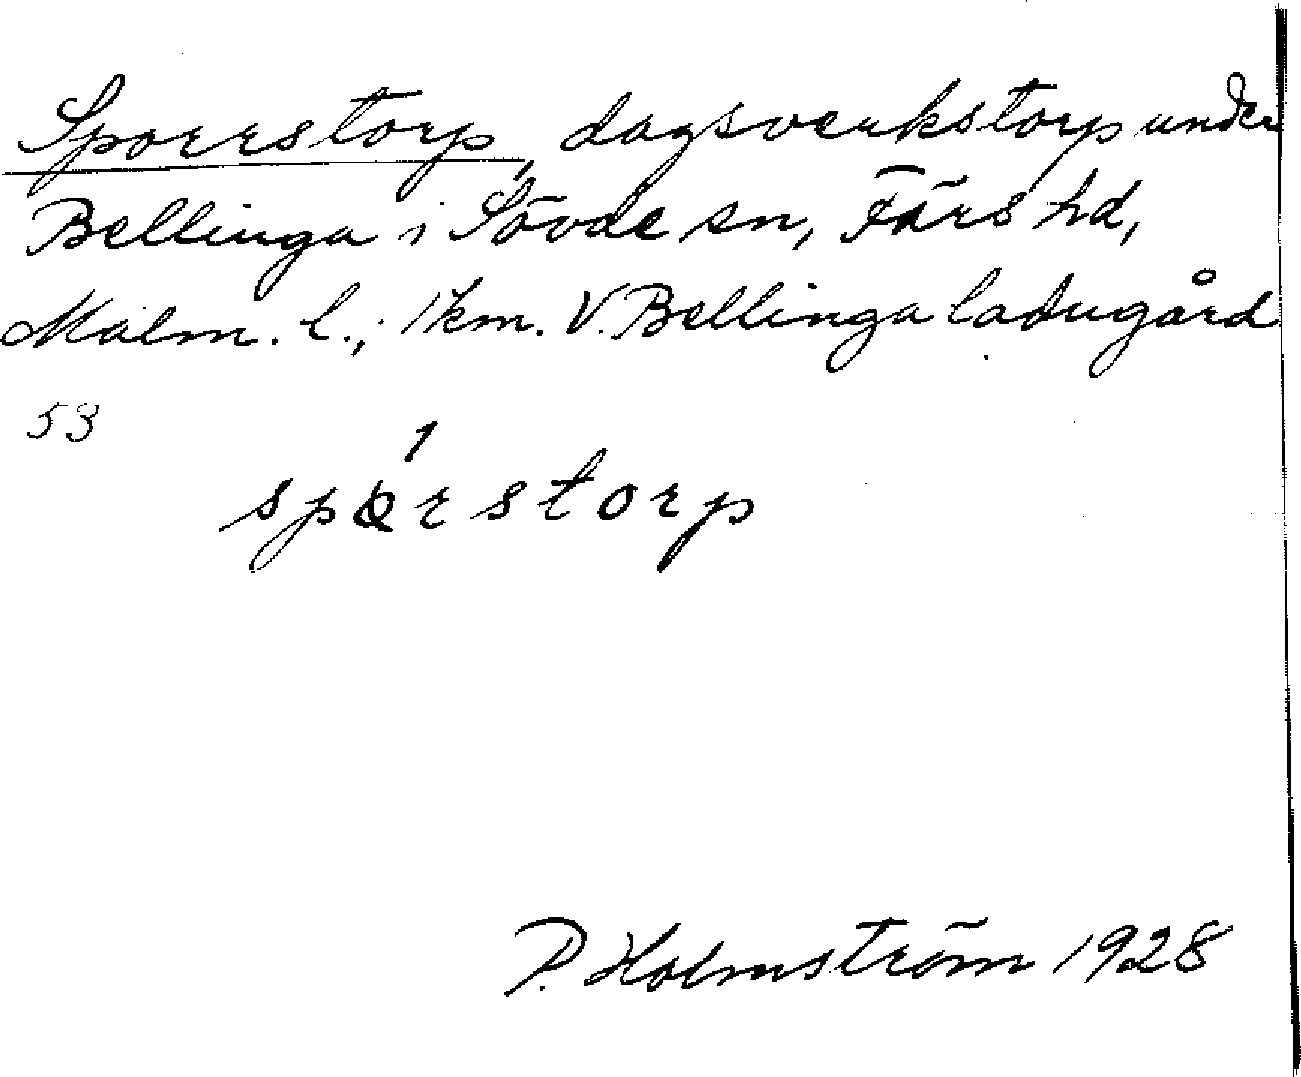 Sporrstorp, dagsverkstorp under
Bellinga i Sövde sn, Färs hd,
Malm. l., 1 km. V. Bellinga ladugård
53
1
spørstorp
P. Holmström 1928